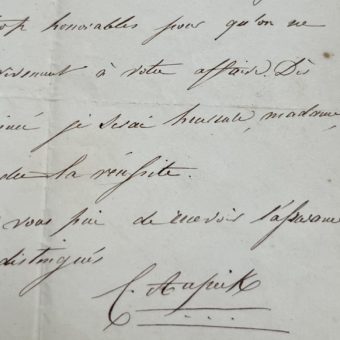 trop honorables pour qu'on ne
à votre affaire. Dès
je serai heureuse, madame,
de la réussite.
vous prie de recevoir l'assurance
distingués
C. Aupick